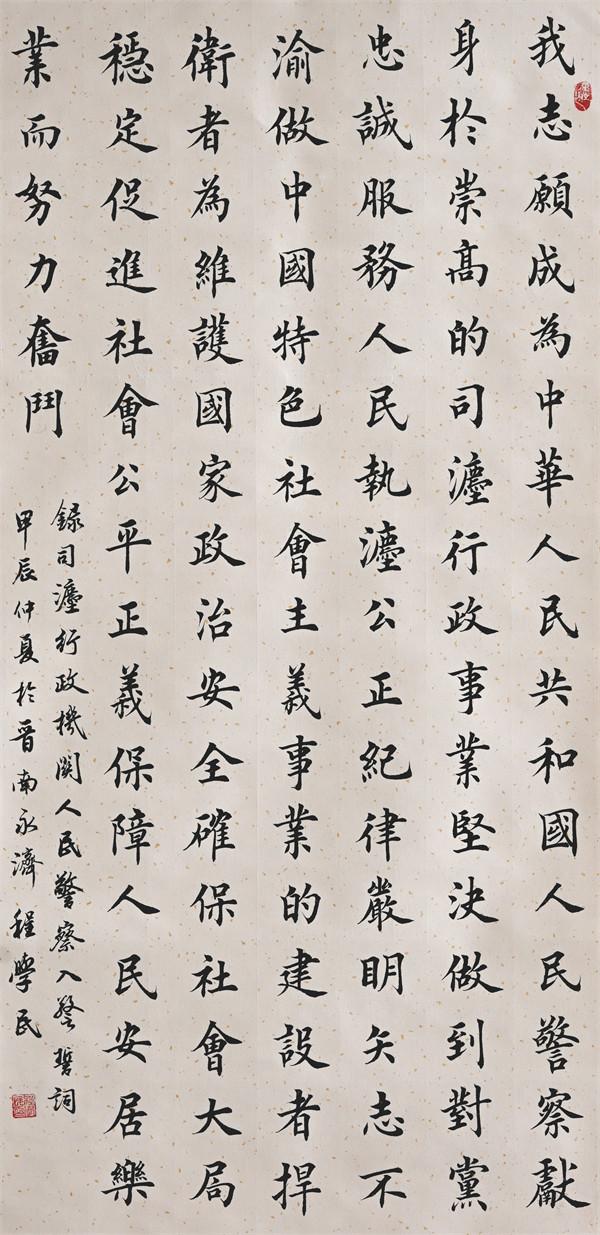 我志願成為中華人民共和國人民警察獻
身於崇高的司灋行政事業堅決做到對黨
忠誠服務人民執灋公正紀律嚴明矢志不
渝做中國特色社會主義事業的建設者捍
衛者為維護國家政治安全確保社會大局
穩定促進社會公平正義保障人民安居樂
業而努力奮鬥
錄司灋行政機関人民警察入警誓詞
甲辰仲夏於晉南永濟程學民